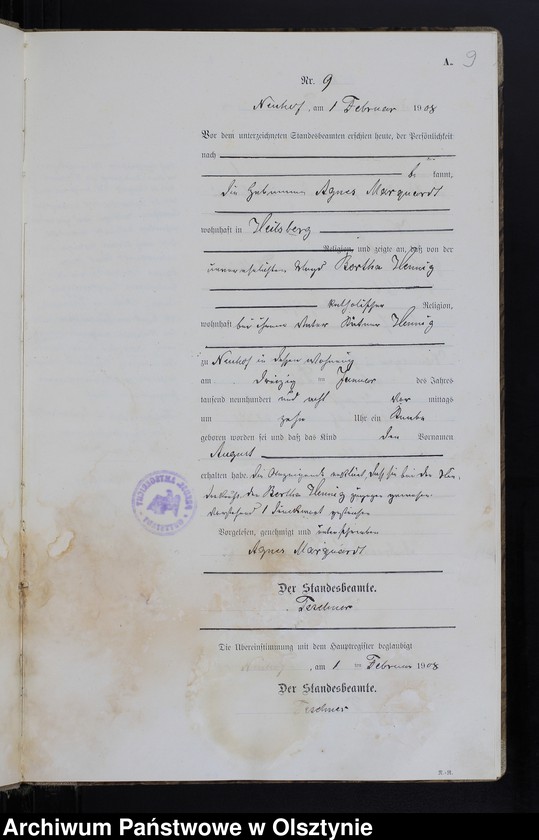 A. 9
Nr. 9
Neuhof, am 1 Februar 1908
Vor dem unterzeichneten Standesbeamten erschien heute, der Persönlichkeit
nach
be kannt,
die Hebamme Agnes Marquardt
wohnhaft in Heilsberg
Religion, und zeigte an, daß von der
unverehelichten Magd Bertha Hennig
katholischer Religion,
wohnhaft bei ihrem Vater Kätner Hennig
zu Neuhof in dessen Wohnung
am dreißig ten Januar des Jahres
tausend neunhundert und acht Vor mittags
um zehn Uhr ein Knabe
geboren worden sei und daß das Kind den Vornamen
August
erhalten habe. Die Anzeigende erklärt, daß sie bei der Nie-
derkunft der Bertha Hennig zugegen gewesen
Vorstehend 1 Druckwort gestrichen
Vorgelesen, genehmigt und unterschrieben
Agnes Marquardt
Der Standesbeamte.
Teschner
Die Übereinstimmung mit dem Hauptregister beglaubigt
Neuhof, am 1 ten Februar 1908
Der Standesbeamte.
Teschner
Archiwum Państwowe w Olsztynie